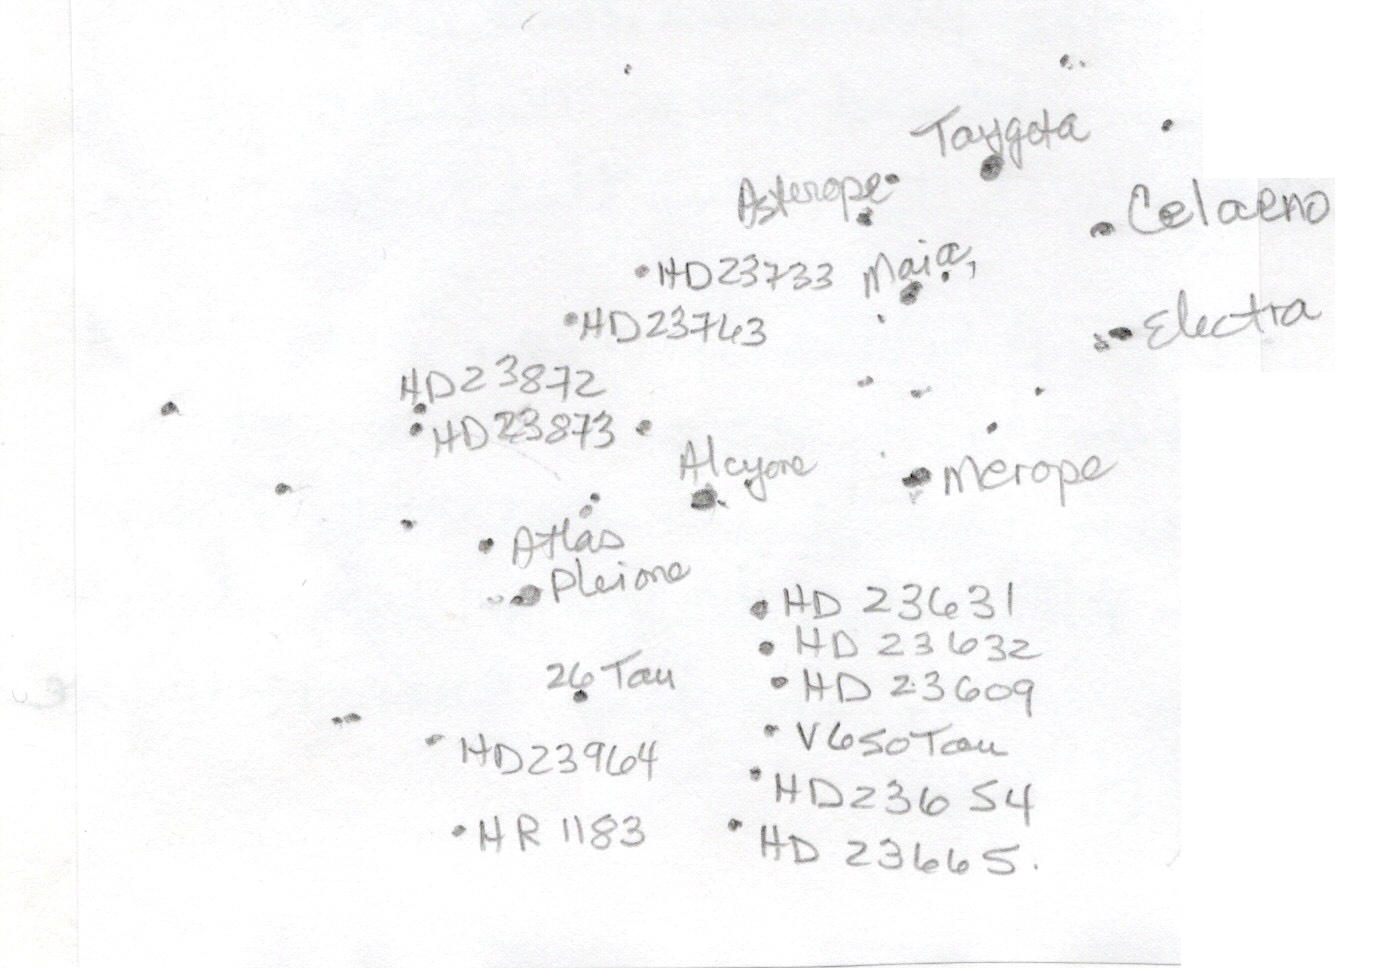 Taygeta
Asterope
Celaeno
HD23733
Maia,
HD23743
Electra
HD23872
HD23873
Alcyone
Merope
Atlas
Pleione
HD 23631
HD 23632
26 Tau
HD 23609
V650 Tau
HD23964
HD236 54
HR 1183
HD 23665.